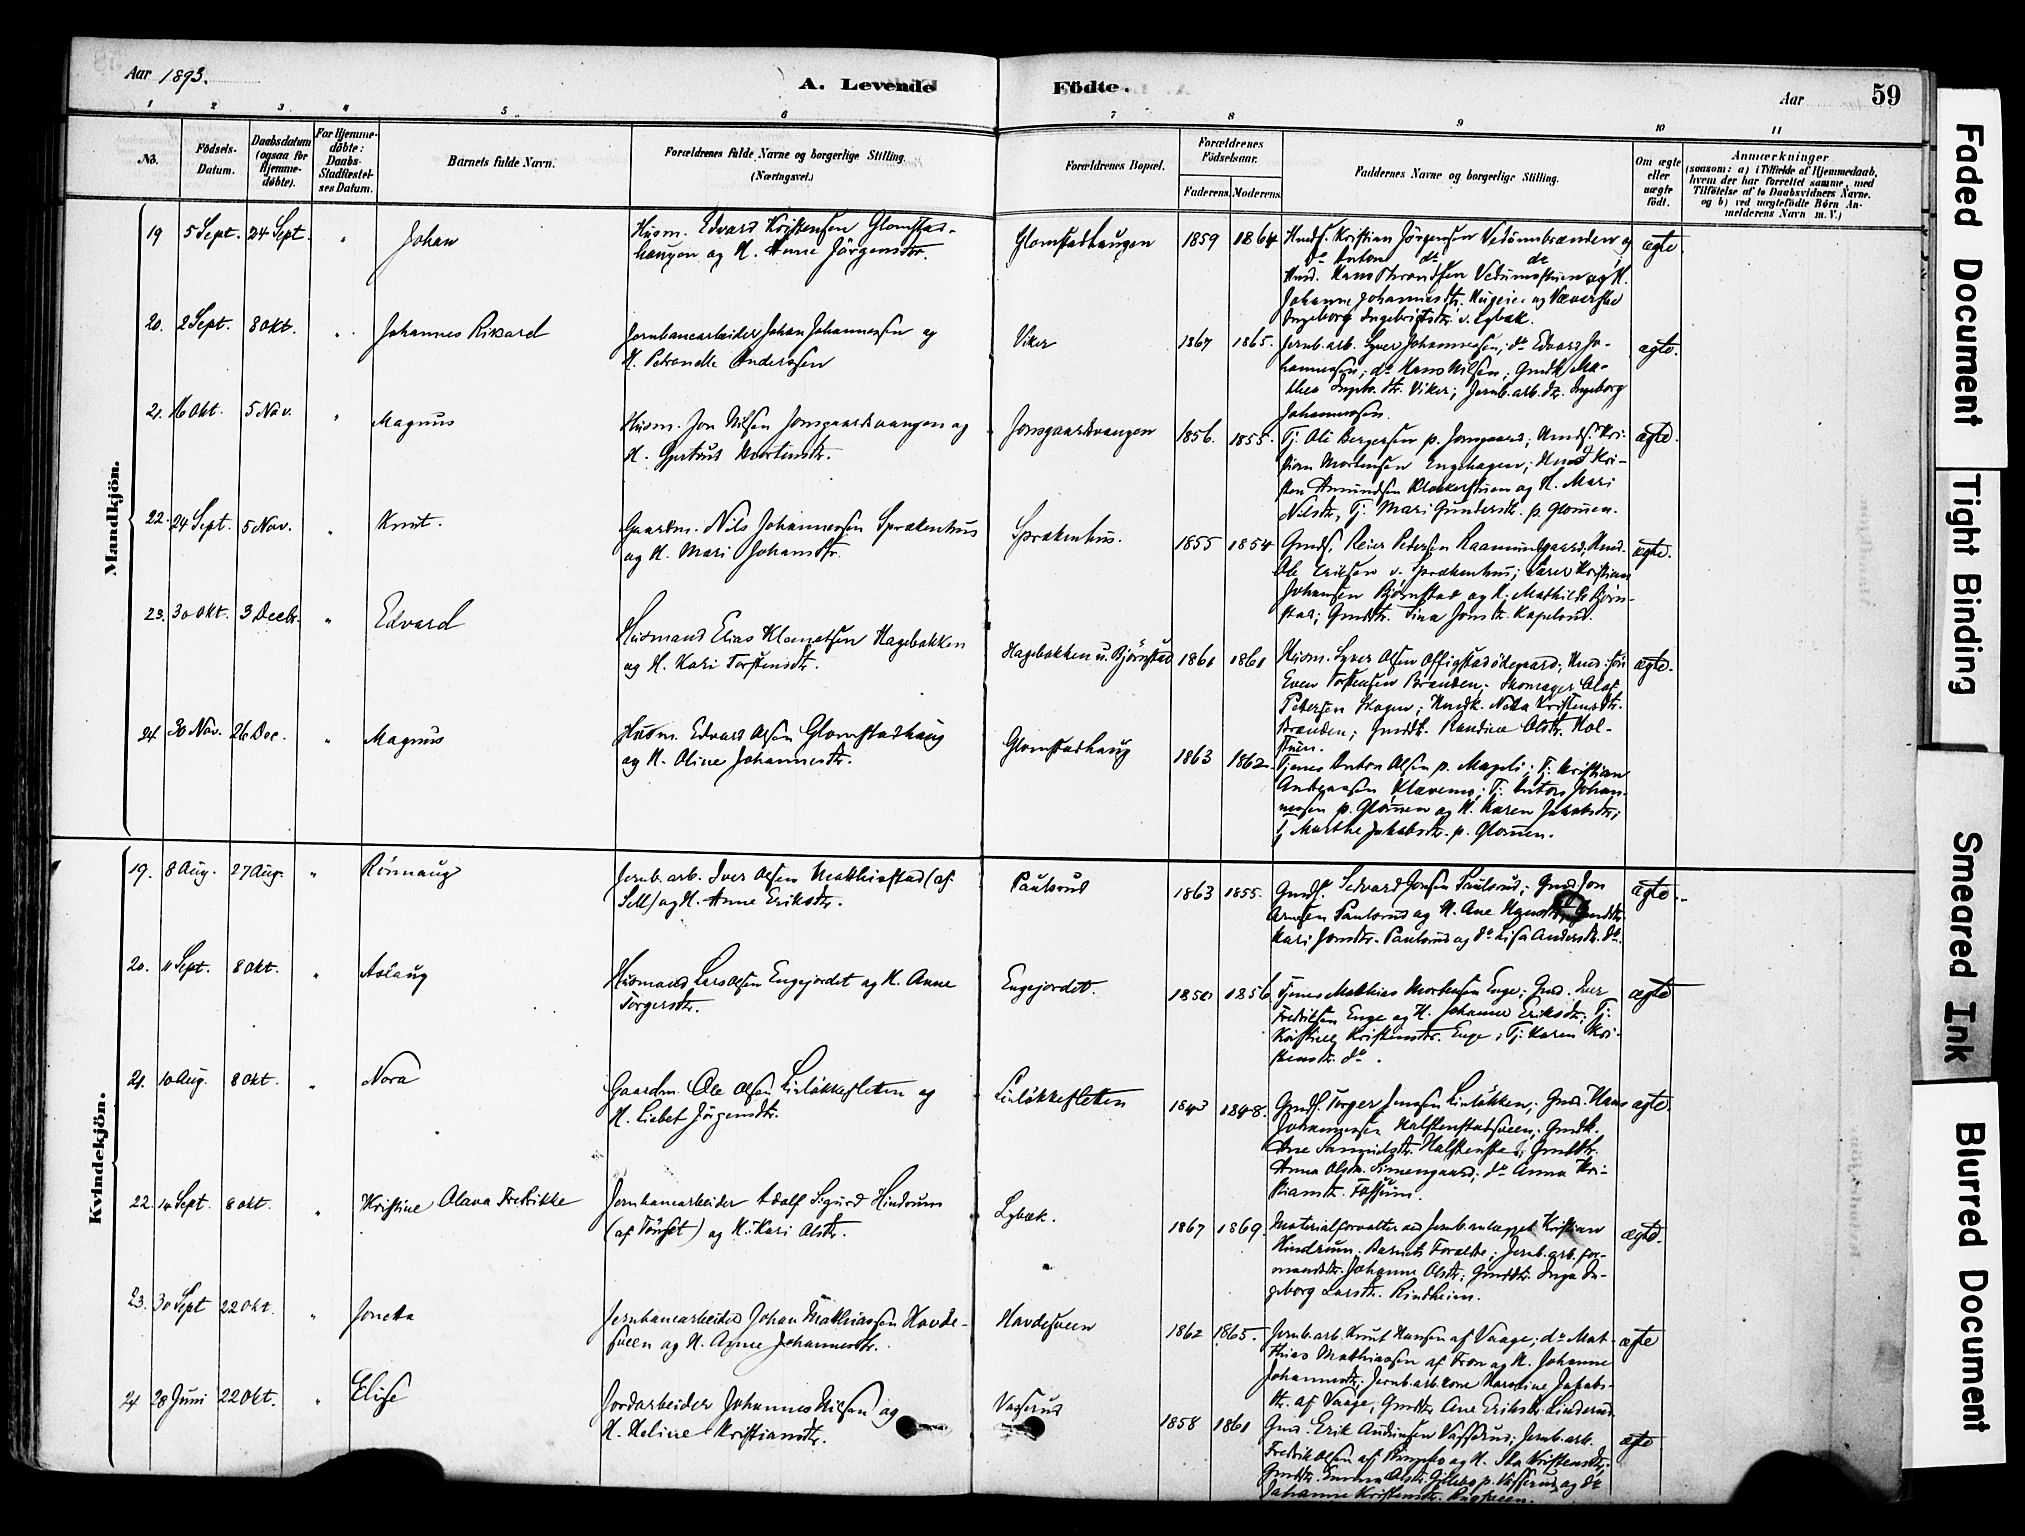 Aar 1893.
A. Levende Födte.
Aar 59
1 2 3 4 5 6 7 8 9 10 11
No.
Födsels-Datum.
Daabsdatum (ogsaa for Hjemme-döbte).
For Hjemme-döbte: Daabs-Stadfæstel-ses Datum.
Barnets fulde Navn.
Forældrenes fulde Navne og borgerlige Stilling. (Næringsvei.)
Forældrenes Bopæl.
Forældrenes Födselsaar.
Faderens. Moderens.
Faddernes Navne og borgerlige Stilling.
Om ægte eller uægte födt.
Anmærkninger
(saasom: a) i Tilfælde af Hjemmedaab,
hvem der har forrettet samme, med
Tilföielse af to Daabsvidners Navne.
og b) ved uægtefödte Börn An-
melderens Navn m. V.)
Mandkjön.
19 5 Sept. 24 Sept. " Johan
Husm. Edvard Kristensen Glomstad-
haugen og H. Anne Jörgensdtr.
Glomstadhaugen 1859 1864
Gmdf. Kristian Jörgensen Vedumbrænden og
do Anton do do
Gmd. Hans Throndsen Vedumstuen og H.
Johanne Johannesdtr.
Ingeborg Ingebrigtsdtr. v. Lybæk.
ægte.
20. 2 Sept. 8 Okt. " Johannes Rikard
Jernbanearbeider Johan Johannessen og
H. Petronelle Anderssen
Viker 1867 1865.
Jernb.arb. Syver Johannessen; do Edvard Jo-
hannessen; do Hans Nilsen; Gmdk. Ma-
thea Viker; Jernb.arb.dtr. Ingeborg
Johannessen.
ægte.
21. 16 Okt. 5 Nov. " Magnus
Husm. Jon Nilsen Jonsgaardsvangen og
H. Gjertrud Mortensdtr.
Jonsgaardsvangen 1856. 1855.
Tj. Ole Bergersen p. Jonsgaard; Gmdf. Kri-
stian Mortensen Engehagen; Gmd. Kri-
sten Amundsen Klokkerstuen og H. Mari
Nilsdtr., Tj. Mari Gundersdtr. p. Glomen.
ægte.
22. 24 Sept. 5 Nov. " Knut.
Gaardm. Nils Johannessen Sprækenhus
og H. Mari Johansdtr.
Sprækenhus. 1855 1854
Gmdf. Reier Pedersen Raamundgaard; Gmd.
Ole Eriksen v. Sprækenhus; Lærer Kristian
Johansen Björnstad og H. Mathilde Björn-
stad; Gmddtr. Sina Jonsdtr. Kapelrud.
ægte.
23. 30 Okt. 3 Decbr. " Edvard
Husmand Elias Klemetsen Hagebakken
og H. Kari Torstensdtr.
Hagebakken u. Björnstad 1861 1861
Husm. Syver Olsen Offigstadödegaard; Gmd. sön
Even Torstensen Brænden; Skomager Olaf
Petersen Skogen; Gmdk. Netta Kristensdtr.
Brænden; Gmddtr. Randine Olsdtr. Hol-
stuen.
ægte.
24. 30 Nov. 26 Dec. " Magnus
Husm. Edvard Olsen Glomstadhaug
og H. Oline Johannesdtr.
Glomstadhaug 1863 1862.
Tjener Anton Olsen p. Mageli; Tj. Kristian
Andreassen Klævemo; Tj. Anton Johan-
nessen p. Glomen og H. Karen Jakobsdtr.;
Tj. Marthe Jakobsdtr. p. Glomen.
Kvindekjön.
19. 8 Aug. 27 Aug. " Rönnaug
Jernb.arb. Iver Olsen Mathisstad (af
Sell) og H. Anne Eriksdtr.
Paulsrud 1863 1855.
Gmdf. Sedvard Jonsen Paulsrud; Gmd. Jon
Arnesen Paulsrud og H. Ane Gmddtr.
Kari Jonsdtr. Paulsrud og do Lisa Andersdtr. do.
ægte.
20. 11 Sept. 8 Okt. " Aslaug
Husmand Lars Olsen Engejordet og H. Anne
Torgersdtr.
Engejordet. 1850 1856
Tjener Mathias Mortensen Enge; Gmd. Iver
Fredriksen Enge og H. Johanne Eriksdtr.; Tj.
Kristine Kristensdtr. Enge; Tj. Karen Kri-
stensdtr. do.
ægte
21. 10 Aug. 8 Okt. " Nora
Gaardm. Ole Olsen Linlökkesletten og
H. Lisbet Jörgensdtr.
Linlökkesletten 1843 1848.
Gmdf. Torger Jensen Linlökken; Gmd. Hans
Johannessen Halstenstadsveen; Gmdk.
Ane Samuelsdtr. Halstenstad; Gmddtr.
Anna Olsdtr. Simengaard; do Anna Kri-
stiansdtr. Fossum.
ægte.
22. 14 Sept. 8 Okt. " Kristine Olava Fredrikke
Jernbanearbeider Adolf Sigurd Hindrum
(af Tönset) og H. Kari Olsdtr.
Lybæk. 1867 1869.
Materialforvalter ved Jernb.anlægget Kristian
Hindrum; Barnets Forældre; Jernb.arb.for-
mandsdtr. Johanne Olsdtr.; Gmddtr. Inga In-
geborg Larsdtr. Rindheim.
ægte.
23. 30 Sept 22 Okt. " Jonetta
Jernbanearbeider Johan Mathiassen Havde-
sveen og H. Agnes Johannesdtr.
Havdesveen 1862 1865.
Jernb.arb. Knut Hansen af Vaage; do Mat-
thias Mathiassen af Fron og H. Johanne
Johannesdtr.; Jernb.arb.kone Karoline Jakobs-
dtr. af Vaage, Gmddtr. Ane Eriksdtr. Linderud.
ægte
24 28 Juni 22 Okt. " Elise
Jordarbeider Johannes Nilsen og
H. Heline Kristiansdtr.
Vasrud 1858 1861
Gmd. Erik Andersen Vasrud; Jernb.arb.
Fredrik Olsen af Ringebo og H. Kristensdtr.
Gmddtr. Emma Olsdtr. p. Vasrud og do
Johanne Kristensdtr.
ægte
Faded Document
Tight Binding
Smeared Ink
Blurred Document